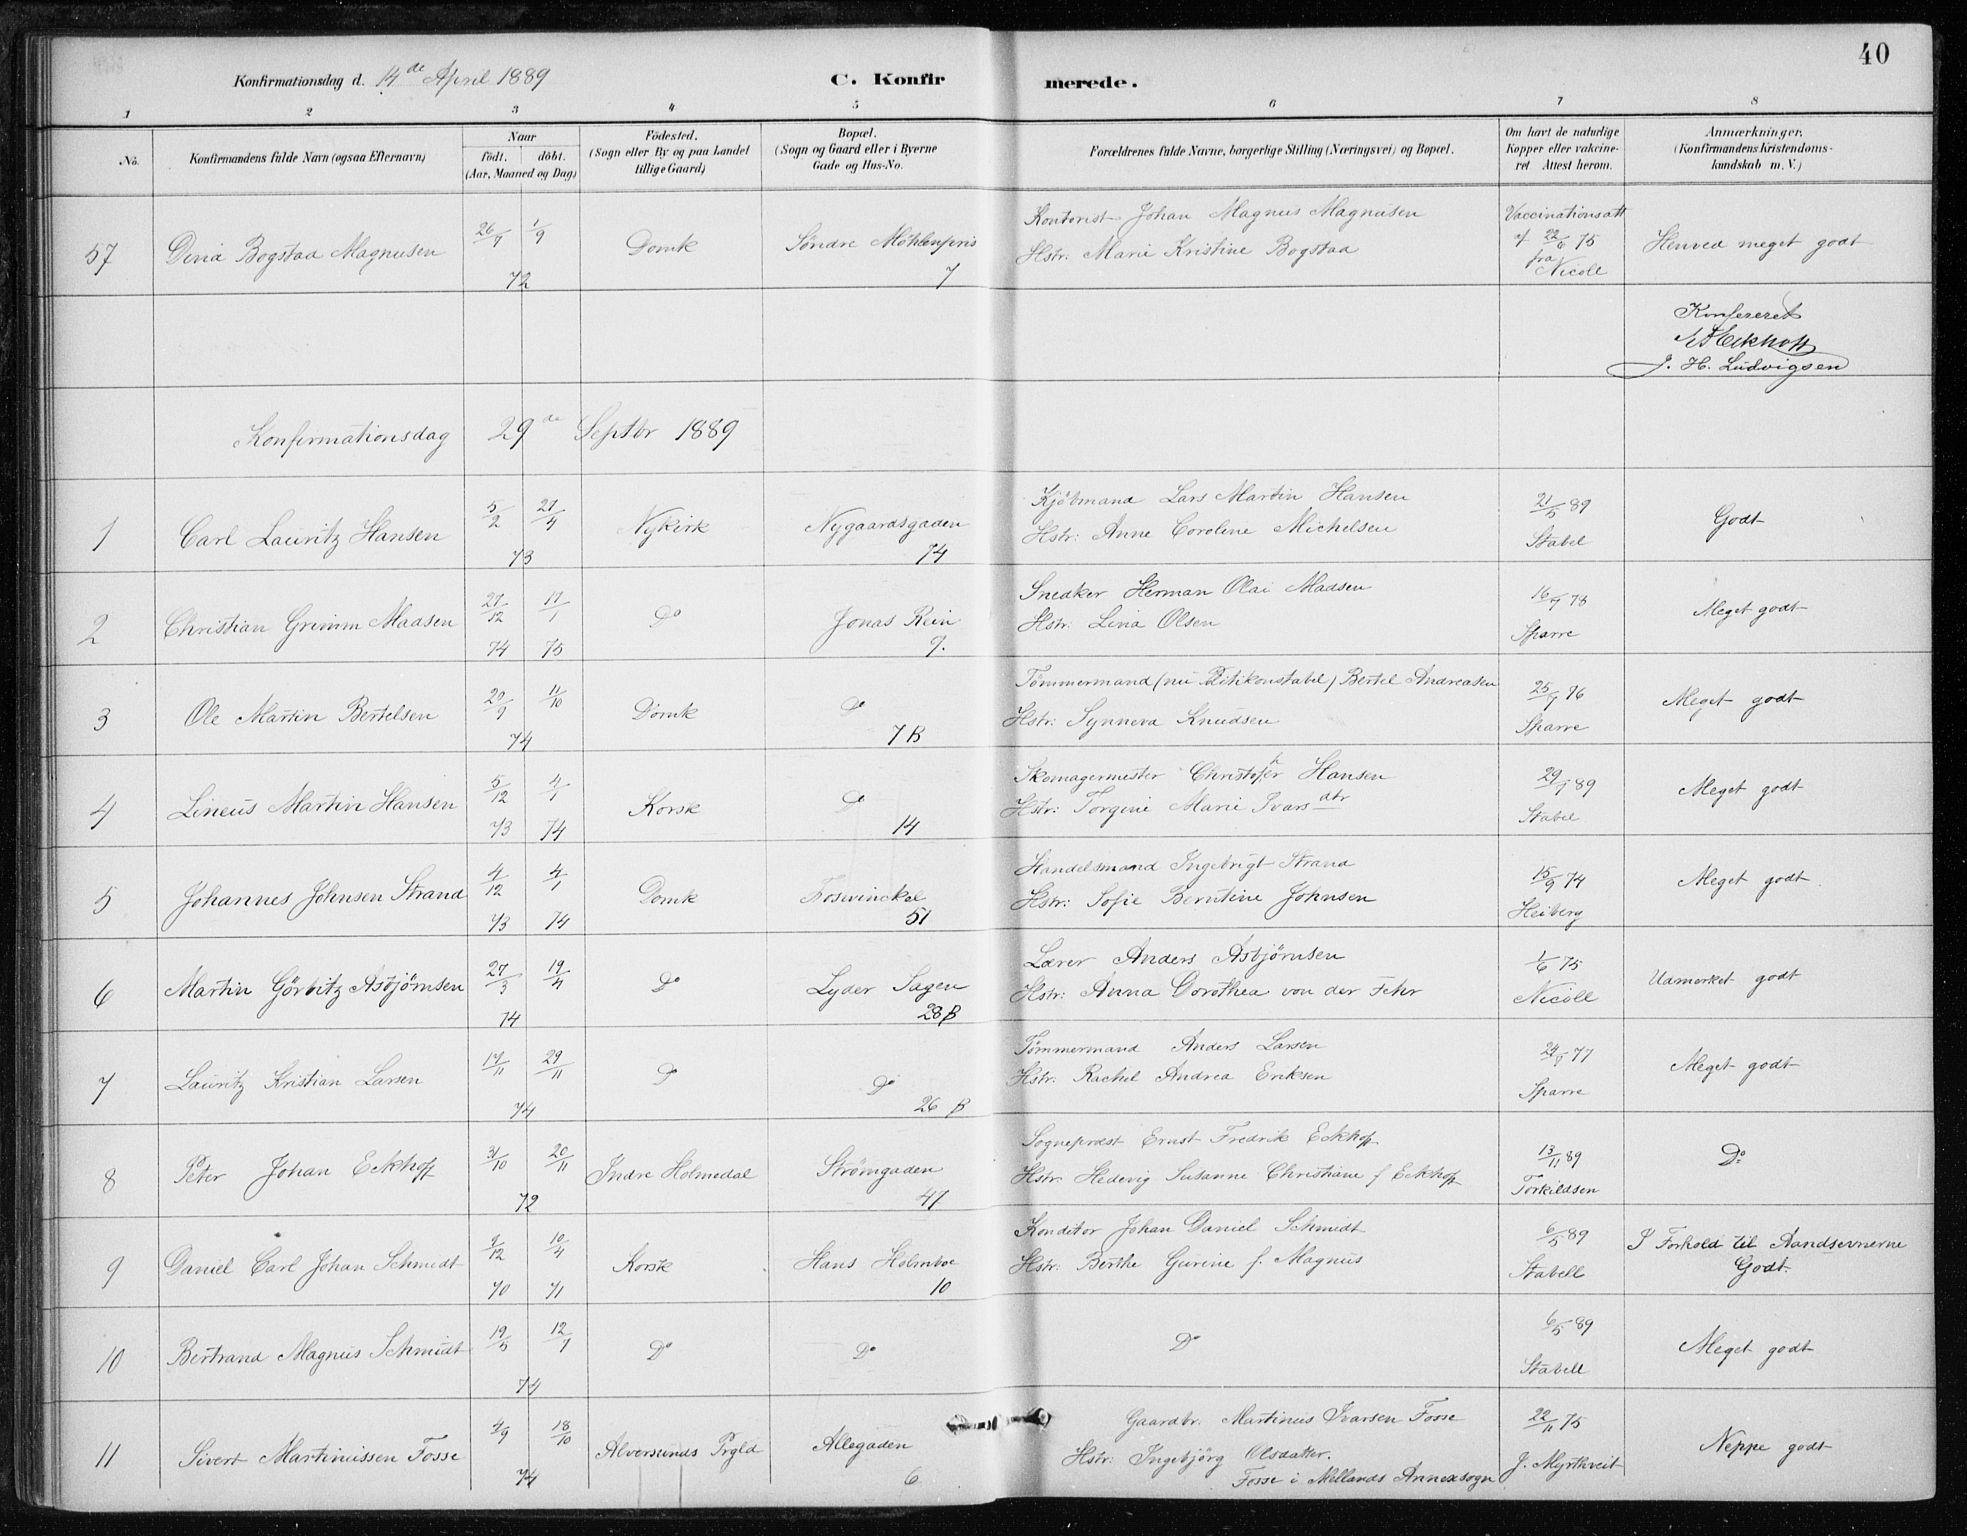 40
Konfirmationsdag d. 14de April 1889
C. Konfirmerede.
1 2 3 4 5 6 7 8
No. Konfirmandens fulde Navn (ogsaa Efternavn) Naar født. døbt. (Aar, Maaned og Dag) Födested. (Sogn eller By og paa Landet tillige Gaard) Bopæl. (Sogn og Gaard eller i Byerne Gade og Hus-No. Forældrenes fulde Navne, borgerlige Stilling (Næringsvei) og Bopæl. Om havt de naturlige Kopper eller vakcineret Attest herom. Anmærkninger. (Konfirmandens Kristendomskundskab m. V.)
57 Divia Bogstad Magnusen 26/7 1/9 72 Domk Søndre Möhlenpris 7
Kontorist Johan Magnus Magnusen
Hstr: Marie Kristine Bogstad
Vaccinationsatt af 22/6 75 fra Nicoll
Henved meget godt
Konfereret
Eckhoff
J. H. Ludvigsen
Konfirmationsdag 29de Septbr 1889
1 Carl Lauritz Hansen 5/2 27/4 73 Nykirk Nygaardsgaden 74
Kjöbmand Lars Martin Hansen
Hstr: Anne Caroline Michelsen
21/5 89 Stabel
Godt
2 Christian Grimm Maasen 27/12 74 17/1 75 Do Jonas Rein 9.
Snedker Herman Olai Madsen
Hstr: Lina Olsen
16/9 78 Sparre
Meget godt
3 Ole Martin Bertelsen 20/9 11/10 74 Domk Do 7 B
Tömmermand (nu Politikonstabel) Bertel Andreasen
Hstr: Synneva Knudsen
25/9 76 Sparre
Meget godt
4 Lineus Martin Hansen 5/12 73 4/1 74 Korsk Do 14
Skomagermester Christofer Hansen
Hstr: Torgine Marie Ivarsdtr
29/ 89 Stabel
Meget godt
5 Johannes Johnsen Strand 4/12 73 4/1 74 Domk Foswinckel 51
Handelsmand Ingebrigt Strand
Hstr: Sofie Berntine Johnsen
15/9 74 Heiberg
Meget godt
6 Martin Görbitz Asbjörnsen 27/3 19/4 74 Do Lyder Sagen 28 B
Lærer Anders Asbjørnsen
Hstr: Anna Dorothea von der Fehr
1/6 75 Nicoll
Udmerket godt
7 Lauritz Kristian Larsen 17/11 29/11 74 Do Do 26 B
Tømmermand Anders Larsen
Hstr: Rachel Andrea Eriksen
24/ 77 Sparre
Meget godt
8 Peter Johan Eckhoff 31/10 20/11 72 Indre Holmedal Strømgaden 47
Sogneprest Ernst Fredrik Eckhoff
Hstr: Hedevig Susanne Christiane f Eckhoff
13/11 89 Torkildsen
Do
9 Daniel Carl Johan Schmidt 9/12 70 10/4 71 Korsk Hans Holmboe 10
Konditor Johan Daniel Schmidt
Hstr: Berthe Gurine f. Magnus
6/5 89 Stabell
I Forhold til Aandsevnerne Godt.
10 Bertrand Magnus Schmidt 19/5 12/7 74 Do Do
Do
6/5 89 Stabell
Meget godt
11 Sivert Martinussen Fosse 4/9 18/10 74 Alversunds Prgld Allegaden 6
Gaardbr. Martinus Ivarsen Fosse
Hstr: Ingebjörg Olsdatter.
Fosse i Mellands Annexsogn
22/11 75 J. Myrthveit
Neppe godt